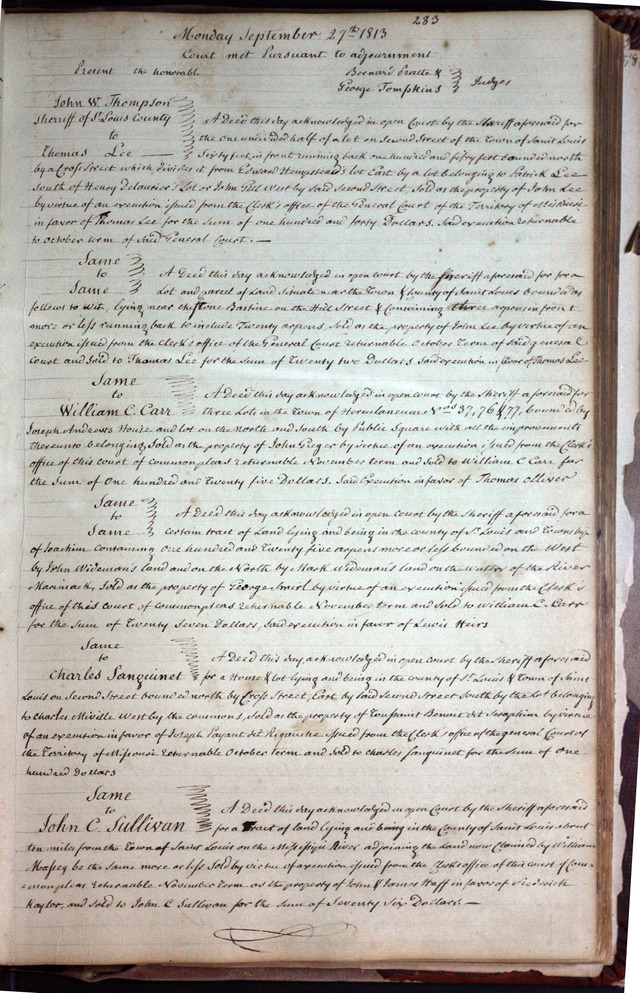 283
Monday September 27th 1813
Court met Pursuant to adjournment
Present the honorable Bernard Pratte &
George Tompkins Judges
John W. Thompson
Sheriff of St Louis County
to
Thomas Lee
A Deed this day acknowledged in open Court by the Sheriff aforesaid for
the one undivided half of a lot on Second Street of the Town of Saint Louis
Sixty feet in front running back one hundred and fifty feet bounded north
by a Cross Street which divides it from Edward Hempstead's lot East by a lot belonging to Patrick Lee
South of Henry Delaurier's Lot or John Gill West by Said Second Street, Sold as the property of John Lee
by virtue of an execution issued from the Clerk's office of the General Court of the Territory of Missouri
in favor of Thomas Lee for the Sum of one hundred and forty Dollars. Said execution returnable
to October term of Said General Court. —
Same
to
Same
A Deed this day acknowledged in open court by the Sheriff aforesaid for for a
Lot and parcel of Land Situate near the Town & County of Saint Louis bounded as
follows to Wit, lying near the Stone Bastine on the Hill Street & Containing three arpens in front
more or less running back to include Twenty arpens, Sold as the property of John Lee by virtue of an
execution issued from the Clerk's office of the General Court returnable October Term of Said general
Court and Sold to Thomas Lee for the Sum of Twenty two Dollars Said execution in favor of Thomas Lee
Same
to
William C. Carr
A Deed this day acknowledged in open court by the Sheriff aforesaid for
three Lots in the Town of Herculaneum Nos 37, 76 & 77, bounded by
Joseph Andrews House and lot on the north and South by Public Square with all the improvements
thereunto belonging, Sold as the property of John Geiger by virtue of an execution issued from the Clerk's
office of this court of common pleas returnable November term and Sold to William C Carr for
the Sum of One hundred and Twenty five Dollars. Said Execution in favor of Thomas Oliver
Same
to
Same
A Deed this day acknowledged in open court by the Sheriff aforesaid for a
certain tract of Land lying and being in the county of St Louis and Township
of Joachim containing one hundred and Twenty five arpens more or less bounded on the West
by John Wideman's land and on the North by Mark Wideman's land on the Waters of the River
Marimack, Sold as the property of George Smirl by virtue of an execution issued from the Clerk's
office of this Court of Common pleas returnable November term and Sold to William C. Carr
for the Sum of Twenty Seven Dollars, Said execution in favor of Lewis Heirs
Same
to
Charles Sanguinet
A Deed this day acknowledged in open court by the Sheriff aforesaid
for a House & lot lying and being in the county of St Louis & Town of Saint
Louis on Second Street bounded north by Cross Street, East by Said Second Street South by the Lot belonging
to Charles Miville West by the commons, Sold as the property of Toussaint Benoit dit Seraphim by virtue
of an execution in favor of Joseph Payant dit Rigauche issued from the Clerk's office of the general Court of
the Territory of Missouri Returnable October term and Sold to Charles Sanguinet for the Sum of One
hundred Dollars
Same
to
John C. Sullivan
A Deed this day acknowledged in open Court by the Sheriff aforesaid
for a Tract of land lying and being in the County of Saint Louis about
ten miles from the Town of Saint Louis on the Mississippi River adjoining the Land now Claimed by William
Massey be the same more or less Sold by virtue of execution issued from the Clerks office of this court of Com=
=mon pleas Returnable November term as the property of John & James Haff in favor of Frederick
Kaylor, and Sold to John C Sullivan for the Sum of Seventy Six Dollars. —